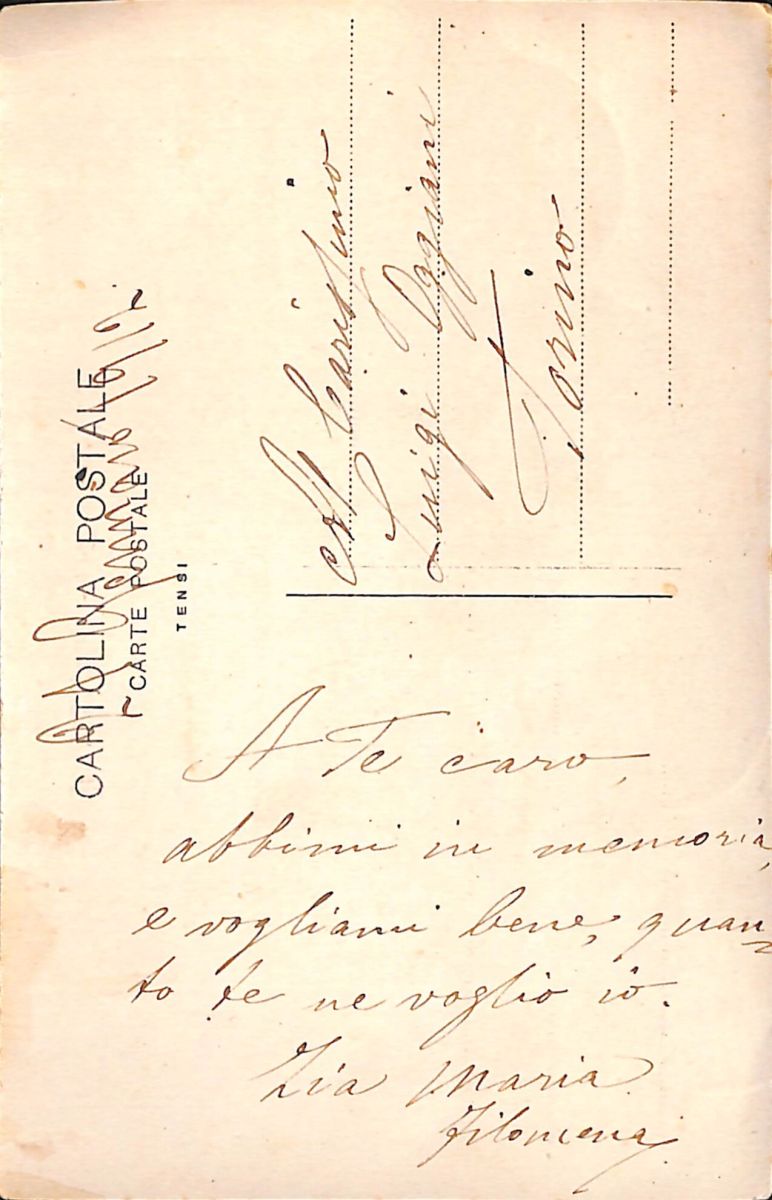 CARTOLINA POSTALE
CARTE POSTALE
TENSI
Al Carissimo
Luigi Oggiani
Torino
A Te caro,
abbimi in memoria,
e vogliami bene, quan-
to te ne voglio io.
Zia Maria
Filomena